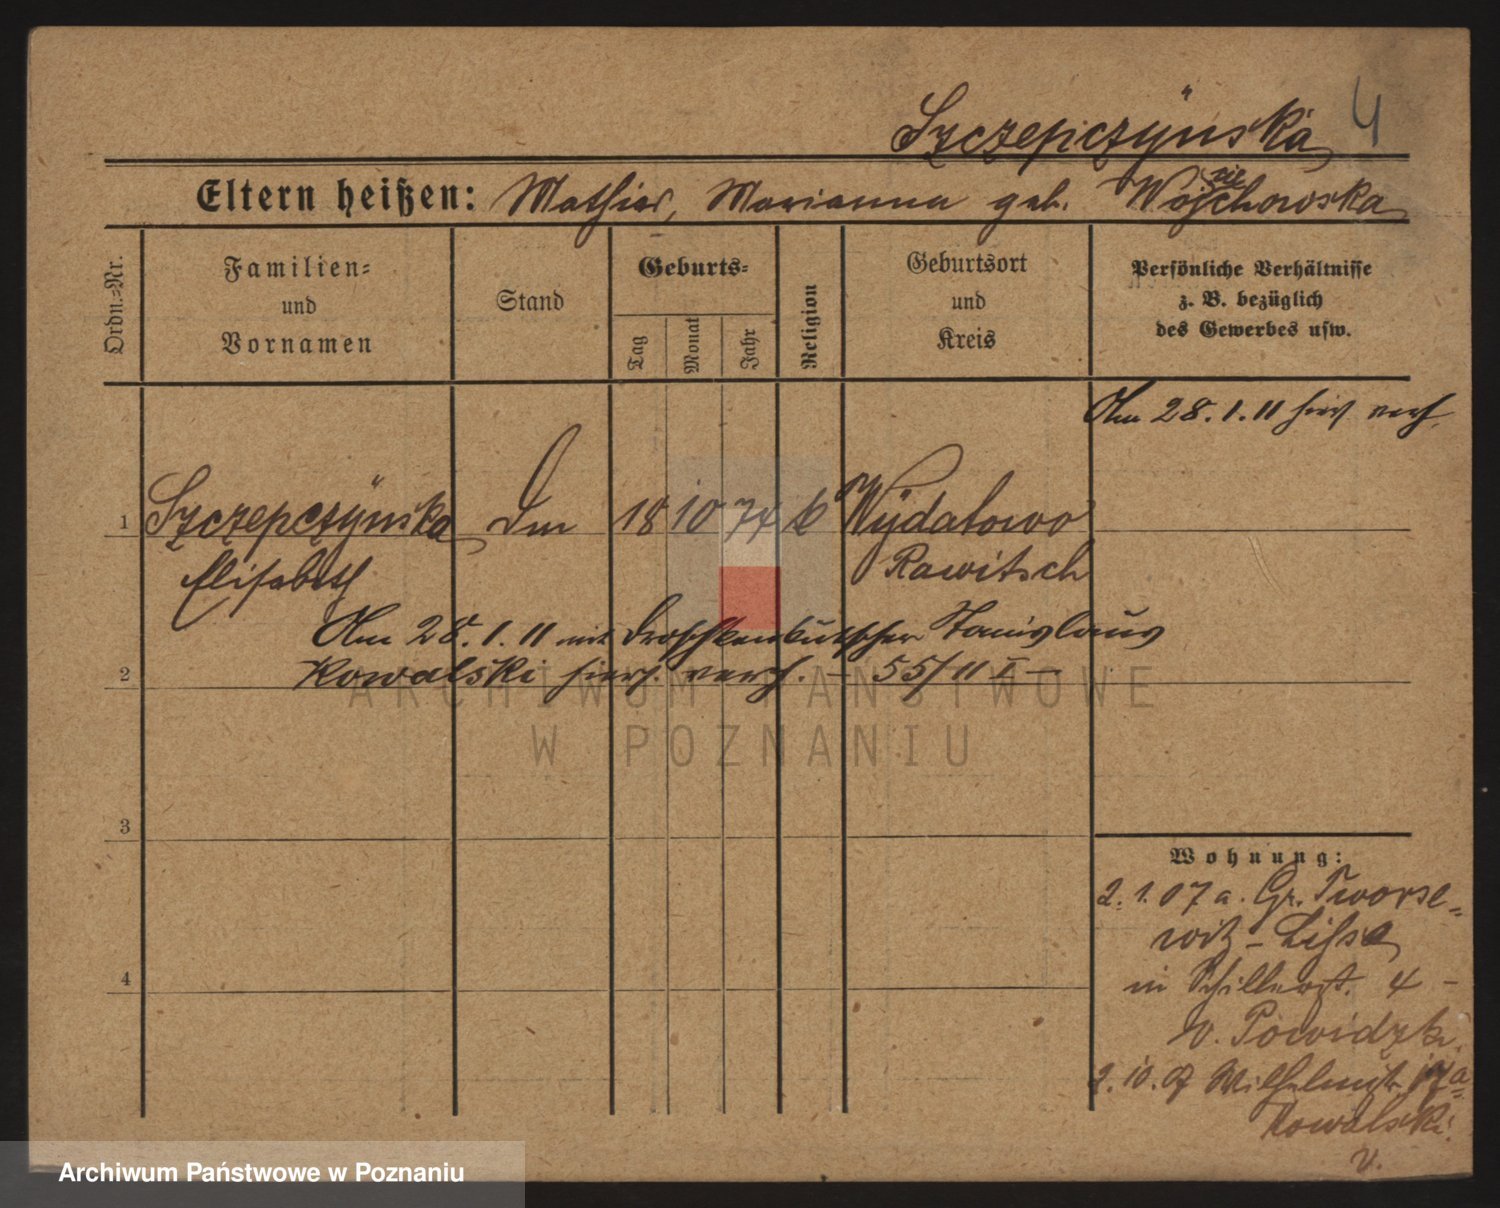 Szczepczÿnska 4
Eltern heißen: Mathias, Marianna geb. Wojchowska
Ordn.-Nr.
Familien-
und
Vornamen
Stand
Geburts-
Tag
Monat
Jahr
Religion
Geburtsort
und
Kreis
Persönliche Verhältnisse
z. B. bezüglich
des Gewerbes usw.
Am 28. 1. 11 hier verh.
1 Szczepczÿnska 18 10 74 k Wÿdatowo
Elisabeth Rawitsch
Am 28. 1. 11 mit Droschkenkutscher Stanislaus
2 Kowalski hier verh. – 55/11 I –
3
4
Wohnung:
2. 1. 07 a. Gr. Tworse-
witz – Lissa
in Schillerst. 4 –
v. Powidzki.
2. 10. 07 Wilhelmst. 17a
Kowalski.
v.
ARCHIWUM PAŃSTWOWE
W POZNANIU
Archiwum Państwowe w Poznaniu